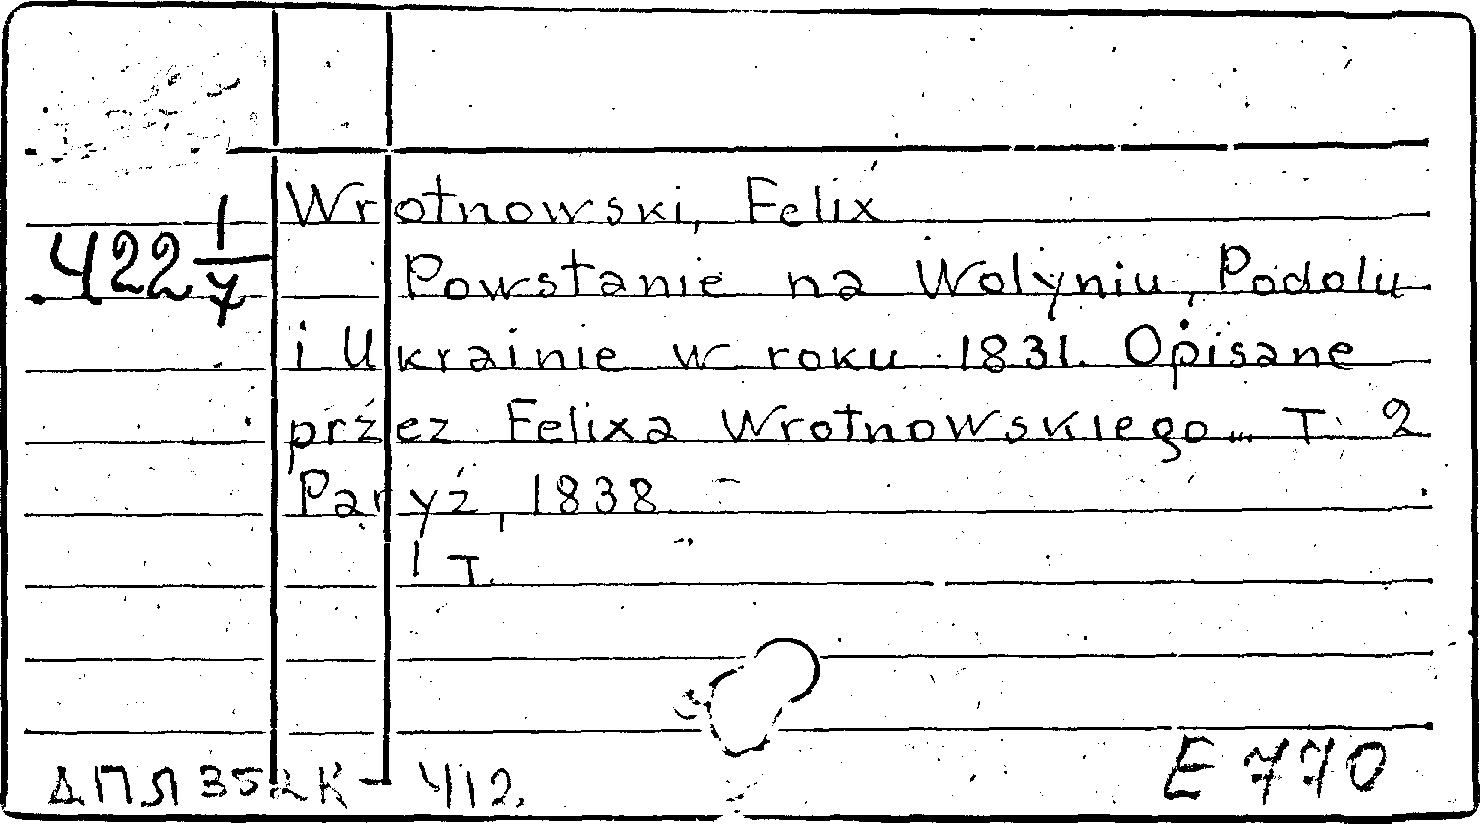 Wrotnowski, Felix
422 1/7
Powstanie na Wolyniu, Podolu
i Ukrainie w roku 1831. Opisane
przez Felixa Wrotnowskiego... T. 2
Paryż, 1838
1 T.
E 770